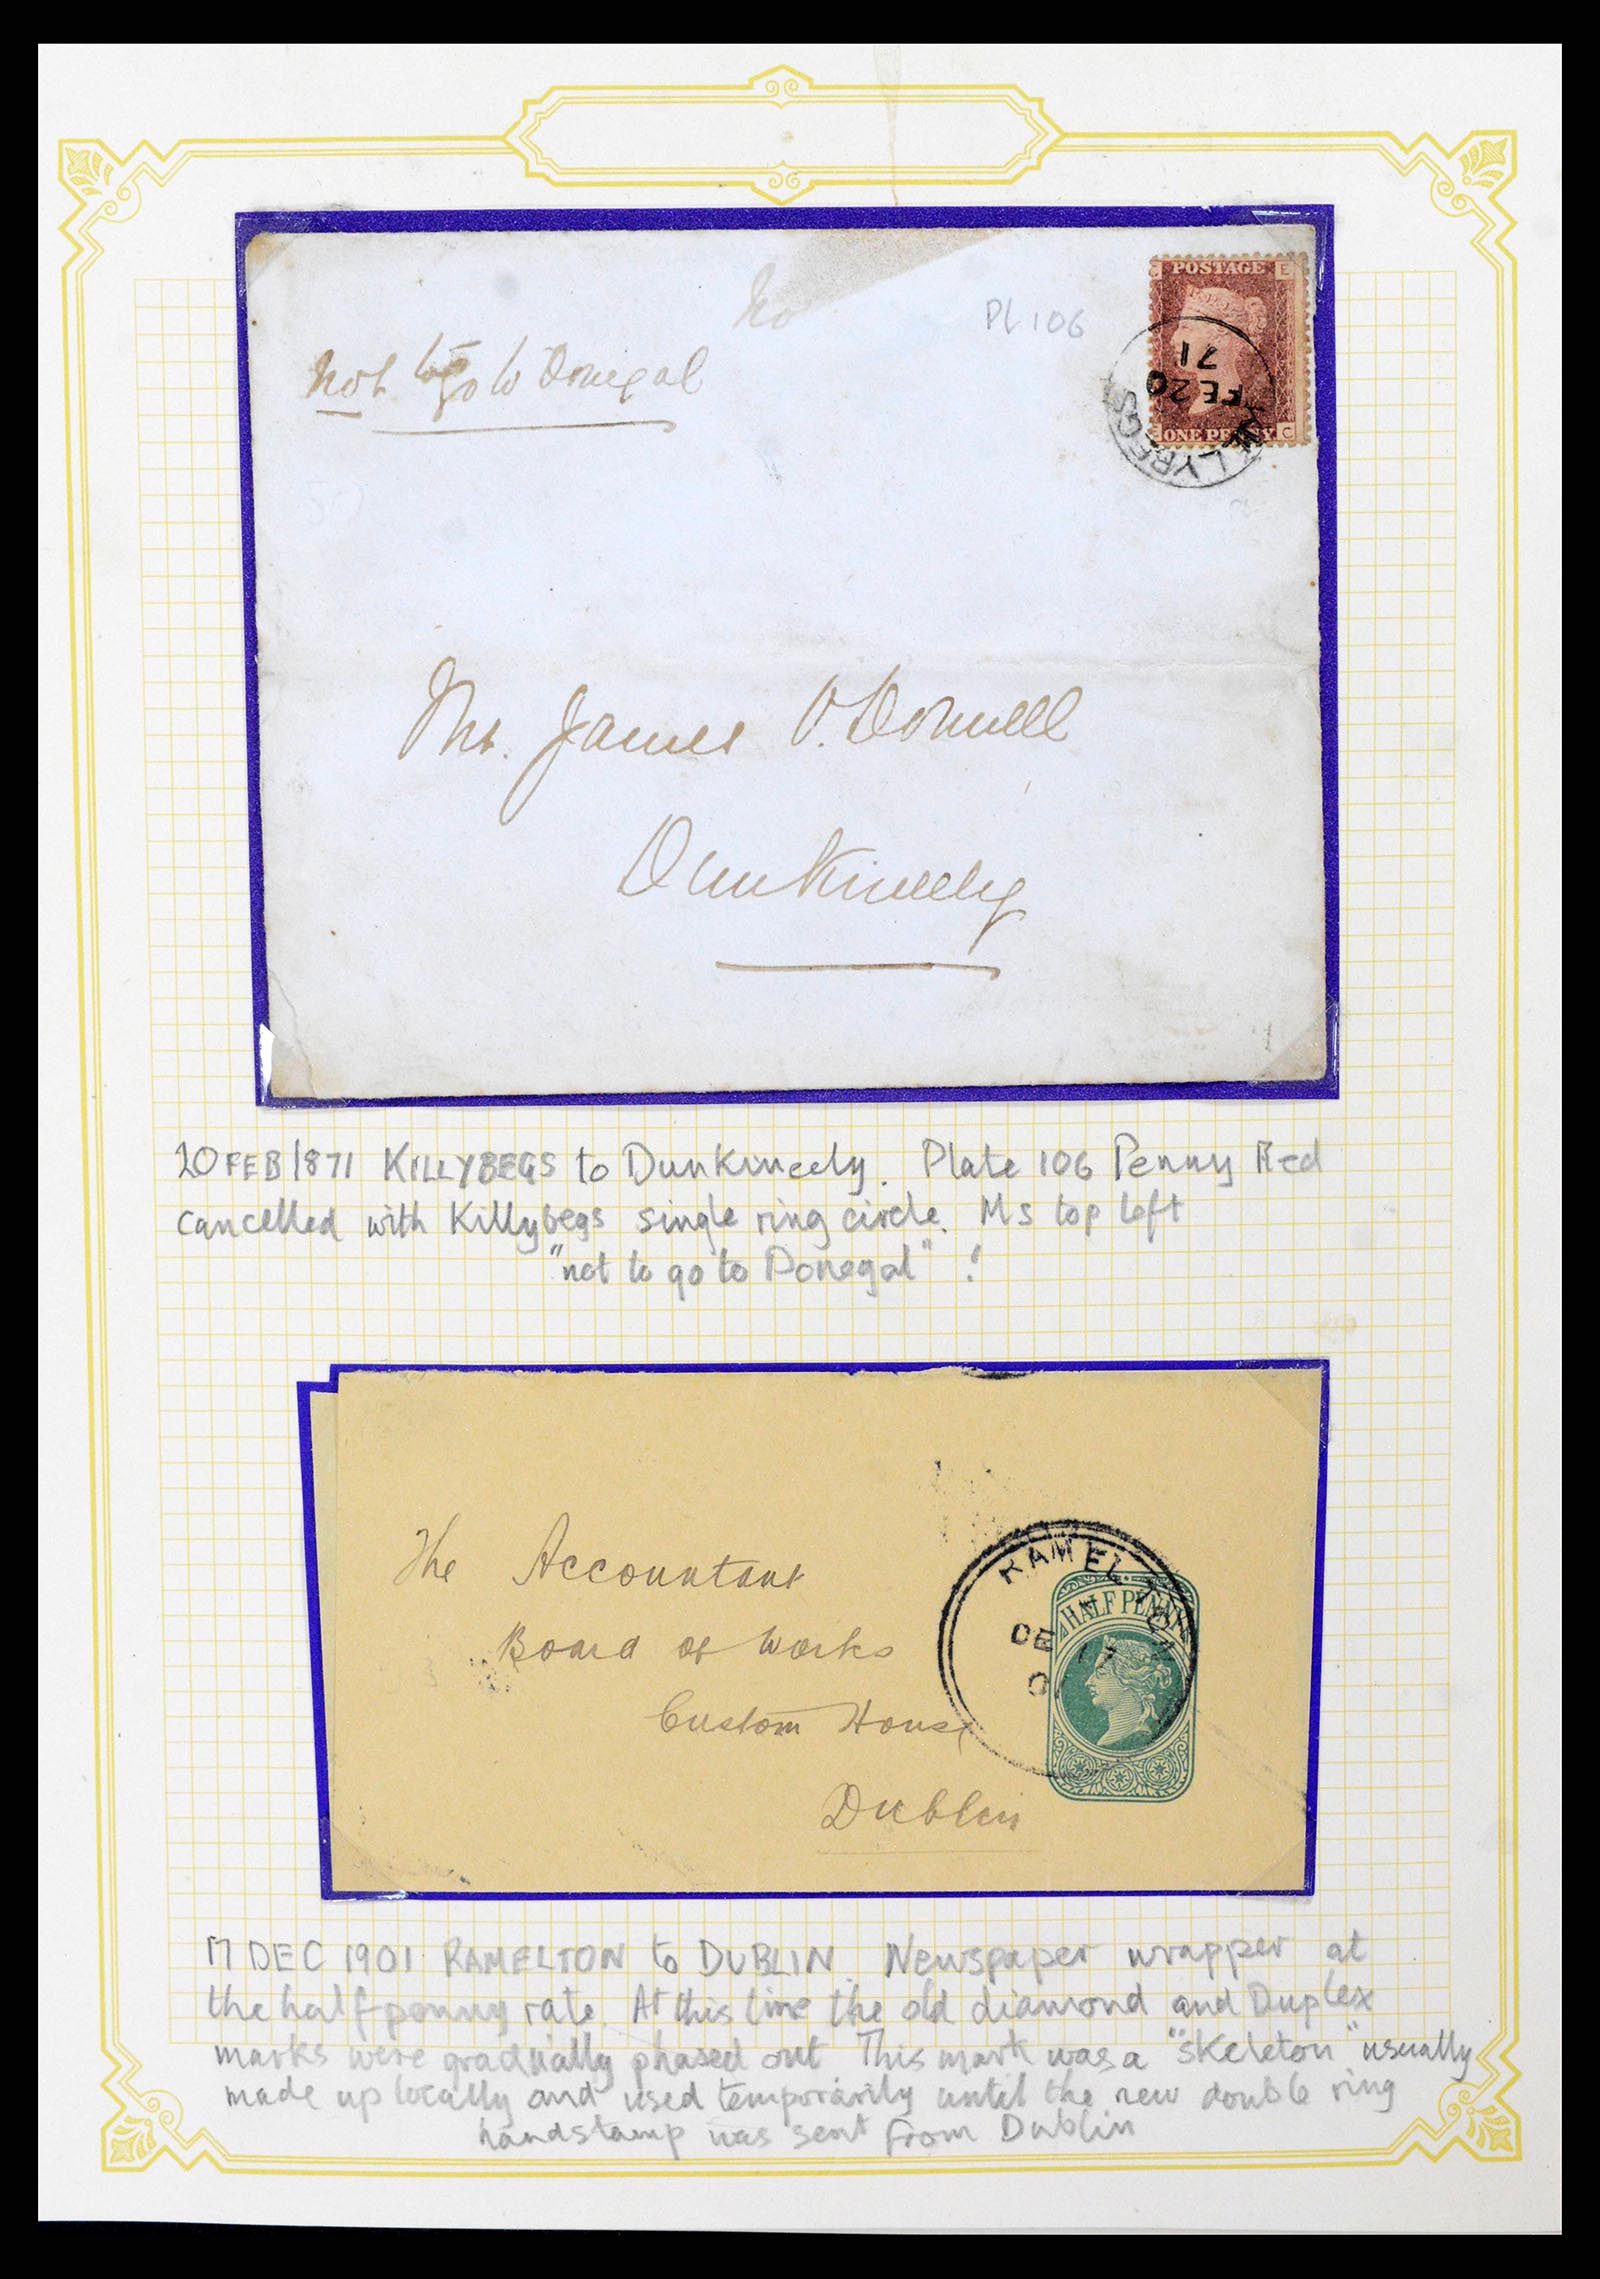 No
Pl 106
POSTAGE E
Not to go to Donegal
71
FE 20
KILLYBEGS
ONE PENNY C
Mr. James O'Donnell
Dunkineely
20 FEB 1871 KILLYBEGS to Dunkineely. Plate 106 Penny Red
cancelled with Killybegs single ring circle. Ms top left
"not to go to Donegal" !
RAMELTON
HALF PENNY
DE 17
The Accountant
Board of Works
Custom House
Dublin
17 DEC 1901 RAMELTON to DUBLIN. Newspaper wrapper at
the halfpenny rate. At this time the old diamond and Duplex
marks were gradually phased out. This mark was a "skeleton" usually
made up locally and used temporarily until the new double ring
handstamp was sent from Dublin